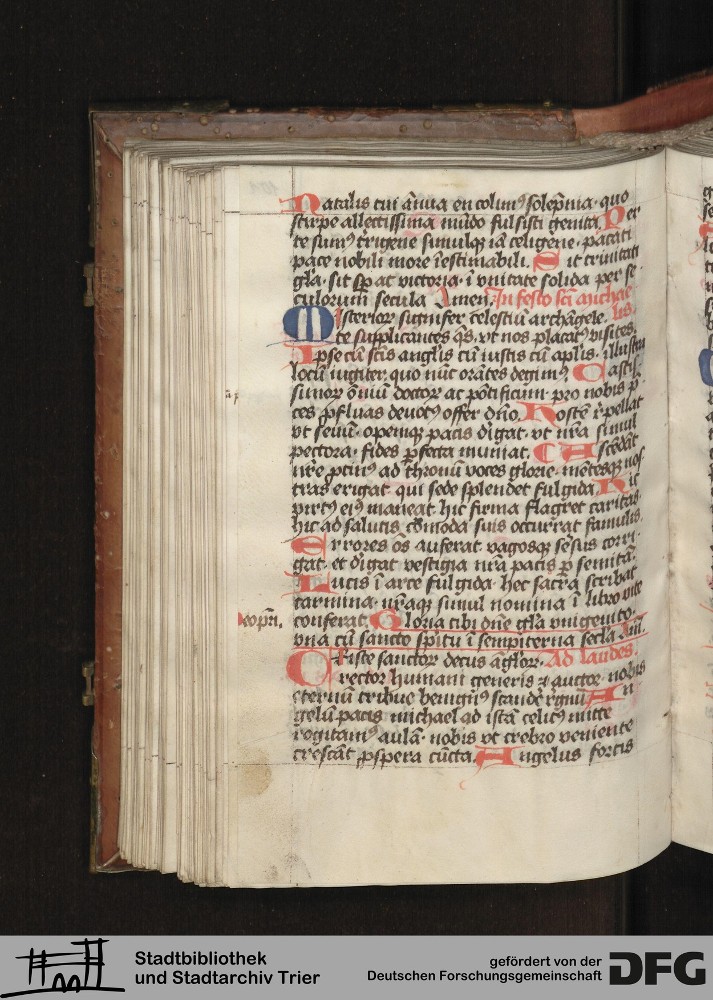 Natalis tui ānua en colimꝰ solēpnia · quo
stirpe allectissima mūdo fulsisti genita. Per
te sumꝰ trigene simulqꝫ iā celigene · pacati
pace nobili more īestimabili. Sit trinitati
gl̄a · sit sp̄at victoria · ī vnitate solida per se
culorum secula Amen. In festo sc̄i michae
Misterioꝝ signifer celestiū archāgele. lis
te supplicantes q̄s. vt nos placatꝰ visites.
Ipse cū sc̄is angl̄is cū iustis cū apl̄is · illustra
locū iugiter quo nūc orātes degimꝰ. Castis
simoꝝ om̄iū doctoꝝ ac pōtificum · pro nobis p̄
ces ꝓfluas deuotꝰ offer dn̄o. Hostē r̄pellat
vt seuū · opemqꝫ pacis d̄igat · vt nr̄a simul
pectora · fides ꝑfecta muniat. Ascēdāt
nr̄e ꝓtinꝰ ad thronū voces glorie · mētesqꝫ nos
tras erigat · qui sede splendet fulgida. Hic
virtꝰ eiꝰ maneat hic firma flagret caritas
hic ad salutis cōmoda suis occurrat famulis.
Errores ōs auferat vagosqꝫ sēsus corri
gat · et d̄igat vestigia nr̄a pacis ꝑ semitā.
Lucis ī arce fulgida · hec sacra scribat
carmina · nr̄aqꝫ simul nomina ī libro vite
conferat. Gloria tibi dn̄e gl̄a vnigenito ·
vna cū sancto spū̄itu ī sempiterna secl̄a Am̄.
Criste sanctoꝝ decus āgl̄oꝝ · Ad laudes.
rector humani generis ⁊ auctor · nobis
eternū tribue benignꝰ scandē r̄gnū. An
gelū pacis michael ad istā celitꝰ mitte
rogitamꝰ aulā · nobis vt crebro veniente
crescāt ꝓspera cūcta. Angelus fortis
Stadtbibliothek
und Stadtarchiv Trier
gefördert von der
Deutschen Forschungsgemeinschaft
DFG